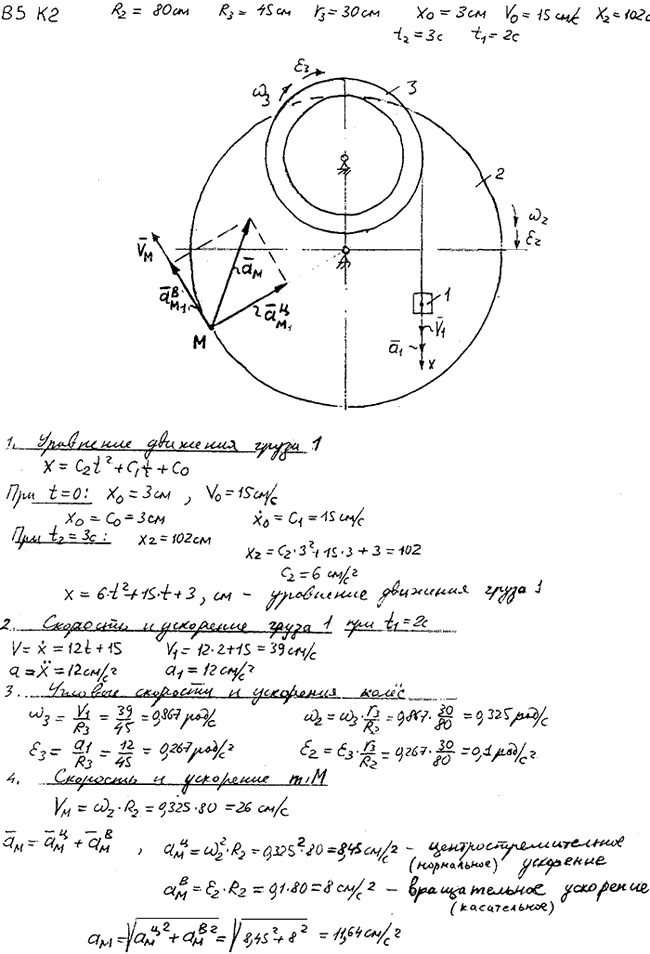 В5 К2 R2 = 80см R3 = 45см r3 = 30см x0 = 3см V0 = 15см/с x2 = 102с
t2 = 3с t1 = 2с
ω3 ε3
3
2
ω2
ε2
V̄M
āM
āᴮM1
āᶜᶣM1
M
1
V̄1
ā1
x
1. Уравнение движения груза 1
x = C2t² + C1t + C0
При t=0: x0 = 3см , V0 = 15см/с
x0 = C0 = 3см ẋ0 = C1 = 15см/с
При t2=3с: x2 = 102см
x2 = C2·3² + 15·3 + 3 = 102
C2 = 6 см/с²
x = 6·t² + 15·t + 3 , см – уравнение движения груза 1
2. Скорость и ускорение груза 1 при t1=2с
V = ẋ = 12t + 15 V1 = 12·2 + 15 = 39см/с
a = ẍ = 12см/с² a1 = 12см/с²
3. Угловые скорости и ускорения колёс
ω3 = V1/R3 = 39/45 = 0,867 рад/с ω2 = ω3·r3/R2 = 0,867·30/80 = 0,325 рад/с
ε3 = a1/R3 = 12/45 = 0,267 рад/с² ε2 = ε3·r3/R2 = 0,267·30/80 = 0,1 рад/с²
4. Скорость и ускорение т.М
VM = ω2·R2 = 0,325·80 = 26 см/с
āM = āMЦ + āMВ , aMЦ = ω2²·R2 = 0,325²·80 = 8,45см/с² – центростремительное
(нормальное) ускорение
aMВ = ε2·R2 = 0,1·80 = 8 см/с² – вращательное ускорение
(касательное)
aM = √(aMЦ² + aMВ²) = √(8,45² + 8²) = 11,64см/с²